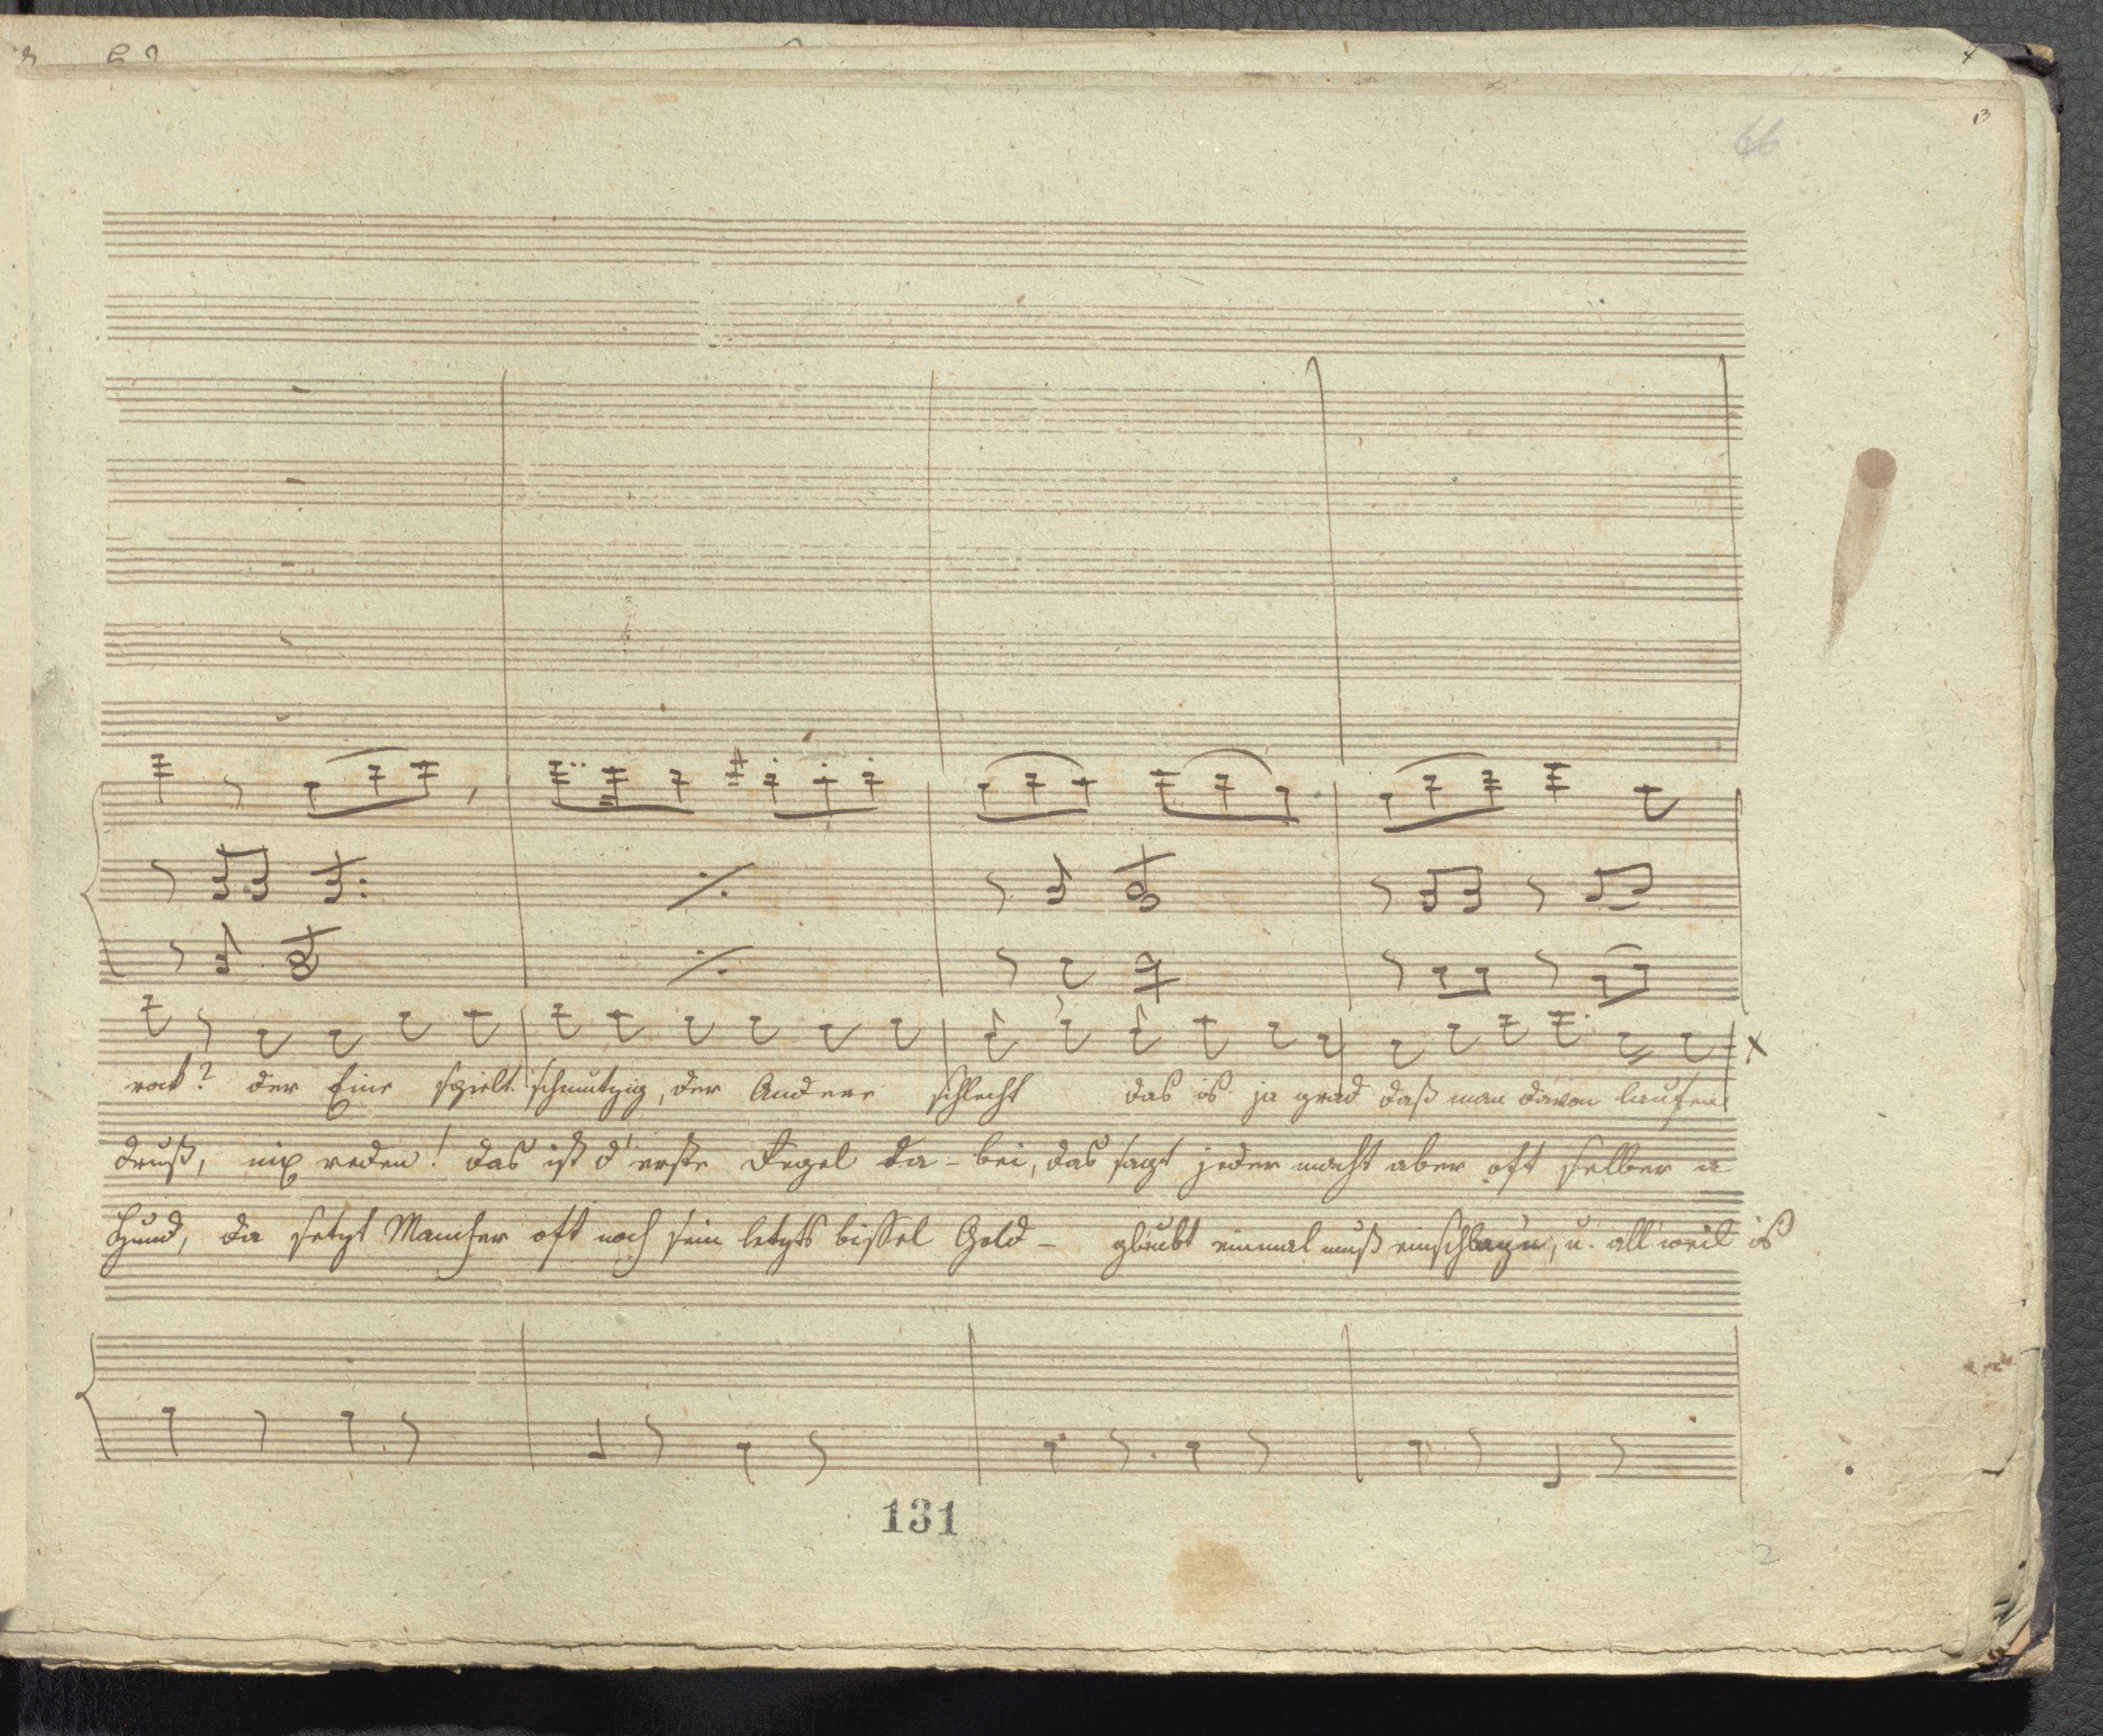 66
13
rock? der Eine spielt schmutzig, der Andere schlecht das is ja grad daß man davon laufen
druß, nix reden! das ist d'erste Regel da-bei, das sagt jeder macht aber oft selber a
Hund, da setzt Mancher oft noch sein letzts bissel Geld- glaubt einmal muß einschlagen, u. all'weil is
131
2